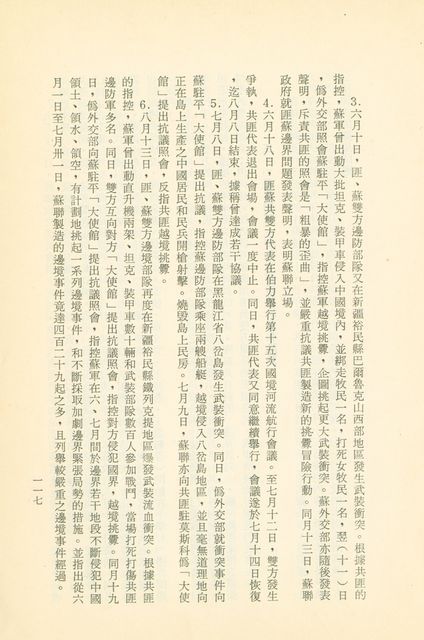 3.六月十日，匪、蘇雙方邊防部隊又在新疆裕民縣巴爾魯克山西部地區發生武裝衝突。根據共匪的
指控，蘇軍曾出動大批坦克、裝甲車侵入中國境內，並綁走牧民一名，打死女牧民一名，翌（十一）日
，僞外交部會蘇駐平「大使館」，指控蘇軍越境挑釁，企圖挑起更大武裝衝突。蘇外交部亦隨後發表
聲明，斥責共匪的照會是「粗暴的歪曲」，並嚴重抗議共匪製造新的挑釁冒險行動。同月十三日，蘇聯
政府就匪蘇邊界問題發表聲明，表明蘇聯立場。
4.六月十八日，匪蘇共雙方代表在伯力舉行第十五次國境河流航行會議。至七月十二日，雙方發生
爭執，共匪代表退出會場，會議一度中止。同日，共匪代表又同意繼續舉行，會議遂於七月十四日恢復
，迄八月八日結束，據稱曾達成若干協議。
5.七月八日，匪、蘇雙方邊防部隊在黑龍江省八岔島發生武裝衝突。同日，僞外交部就衝突事件向
蘇駐平「大使館」提出抗議，指控蘇邊防部隊乘座兩艘船艇，越境侵入八岔島地區，並且毫無道理地向
正在島上生產之中國居民和民兵開槍射擊。燒毀島上民房。七月九日，蘇聯亦向共匪駐莫斯科僞「大使
館」提出抗議照會，反指共匪越境挑釁。
6.八月十三日，匪、蘇雙方邊境部隊再度在新疆裕民縣鐵列克提地區爆發武裝流血衝突。根據共匪
的指控，蘇軍曾出動直升機兩架、坦克、裝甲車數十輛和武裝部隊數百人參加戰鬥，當場打死打傷共匪
邊防軍多名。同日，雙方互向對方「大使館」提出抗議照會，指控對方侵犯國界，越境挑釁。同月十九
日，僞外交部向蘇駐平「大使館」提出抗議照會，指控蘇軍在六、七月間於邊界若干地段不斷侵犯中國
領土、領水、領空，有計劃地挑起一系列邊境事件，和不斷採取加劇邊界緊張局勢的措施。並指出從六
月一日至七月卅一日，蘇聯製造的邊境事件竟達四百二十九起之多，且列舉較嚴重之邊境事件經過。
一一七